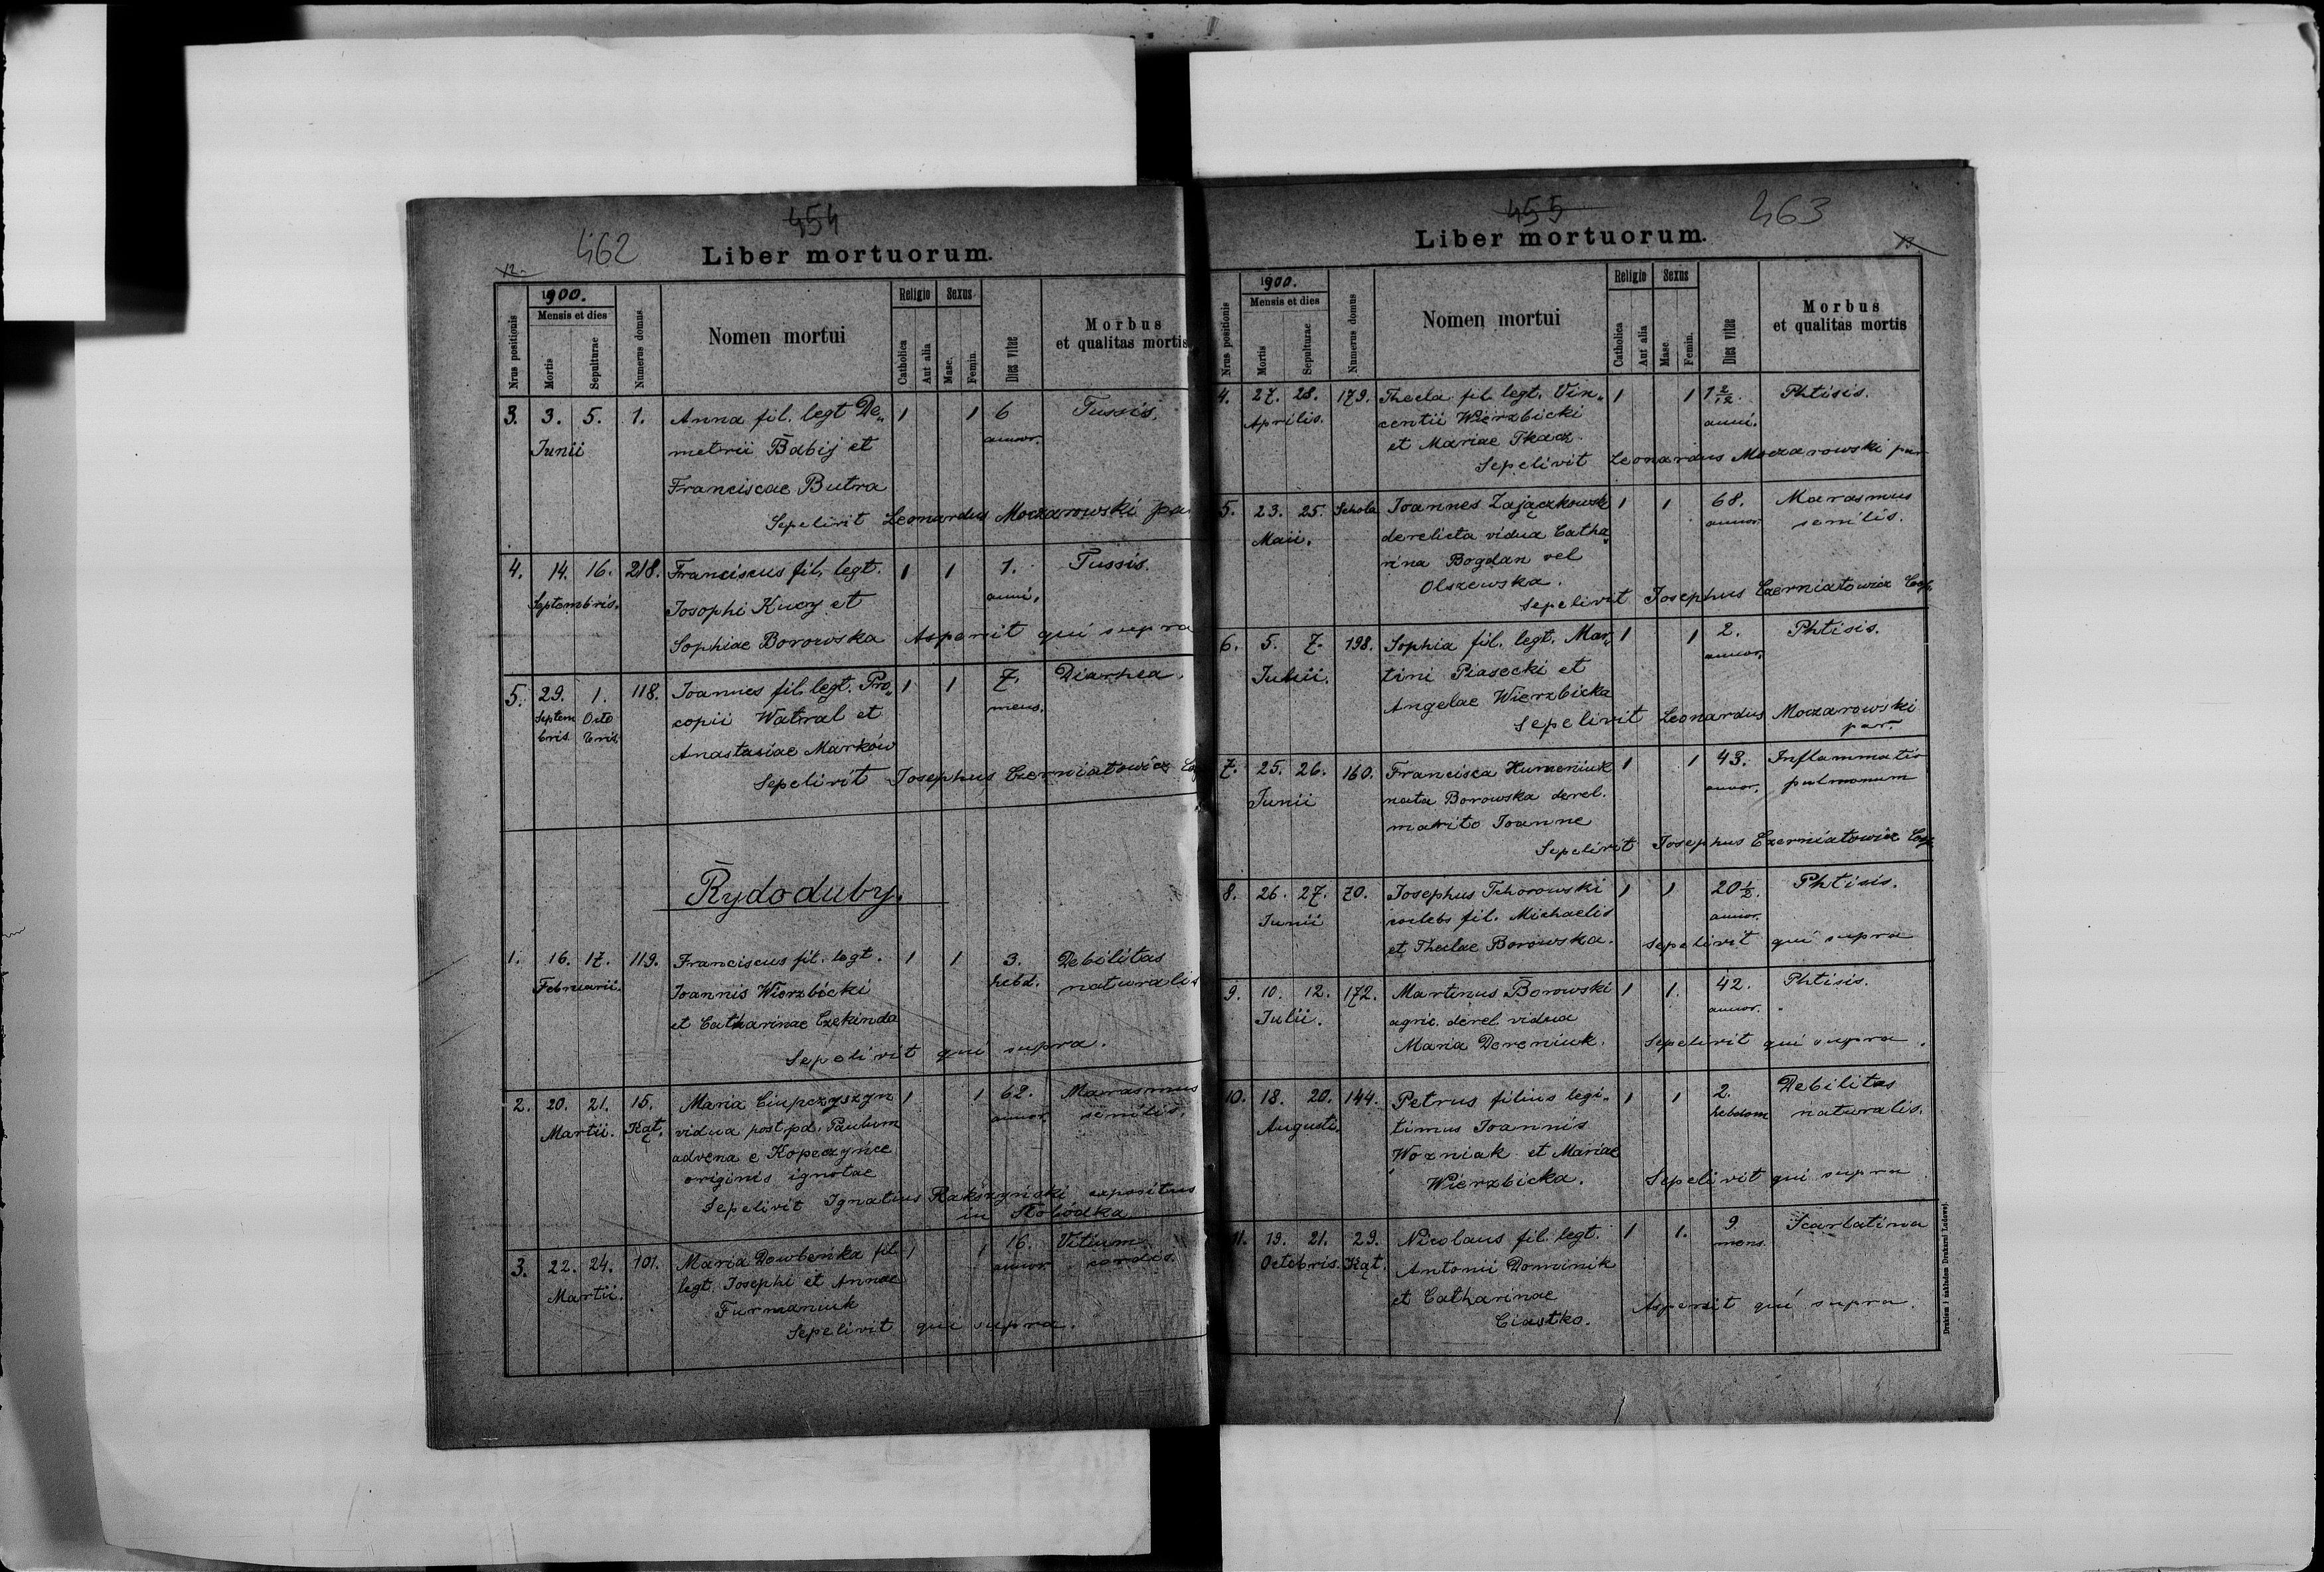 454
462
Liber mortuorum.
12.
Nrus positionis
1900.
Mensis et dies
Mortis
Sepulturae
Numerus domus
Nomen mortui
Religio
Catholica
Aut alia
Sexus
Masc.
Femin.
Dies vitae
Morbus
et qualitas mortis
3. 3. 5. 1. Anna fil. legt De„ 1 1 6 Tussis.
Junii metrii Babij et annor.
Franciscae Butra
Sepelivit Leonardus Moczarowski
4. 14. 16. 218. Franciscus fil. legt. 1 1 1. Tussis.
Septembris. Josophi Kucy et anni.
Sophiae Borowska Aspersit qui supra
5. 29. 1. 118. Joannes fil. legt. Pro„ 1 1 7. Diarhea.
Septem Octo copii Watral et mens.
bris bris Anastasiae Marków
Sepelivit Josephus Czerniatowicz
Rydoduby.
1. 16. 17. 119. Franciscus fil. legt. 1 1 3. Debilitas
Februarii. Joannis Wierzbicki hebd. naturalis
et Catharinae Czekinda
Sepelivit qui supra.
2. 20. 21. 15. Maria Ciupczyszyn 1 1 62. Marasmus
Martii. Kąt. vidua post pd. Paulum annor. senilis.
advena e Kopeczyńce
originis ignotae
Sepelivit Ignatius Rakszyński expositus
in Słobódka
3. 22. 24. 101. Maria Dowbeńka fil. 1 1 16. Vitium
Martii. legt. Josephi et Annae annor. cordis.
Furmaniuk
Sepelivit qui supra.
455
463
Liber mortuorum.
Nrus positionis
1900.
Mensis et dies
Mortis
Sepulturae
Numerus domus
Nomen mortui
Religio
Catholica
Aut alia
Sexus
Masc.
Femin.
Dies vitae
Morbus
et qualitas mortis
4. 27. 28. 179. Thecla fil. legt. Vin„ 1 1 1 2/12. Phtisis.
Aprilis. centii Wierzbicki anni.
et Mariae Tkacz.
Sepelivit Leonardus Moczarowski par
5. 23. 25. Schola Joannes Zajączkowski 1 1 68. Marasmus
Maii. derelicta vidua Catha„ annor. senilis.
rina Bogdan vel
Olszewska.
Sepelivit Josephus Czerniatowicz Coop.
6. 5. 7. 198. Sophia fil. legt. Mar„ 1 1 2. Phtisis.
tini Piasecki et annor.
Angelae Wierzbicka
Sepelivit Leonardus Moczarowski
par.
7. 25. 26. 160. Francisca Humeniuk 1 1 43. Inflammatio
Junii nata Borowska derel. annor. pulmonum
marito Joanne
Sepelivit Josephus Czerniatowicz Coop.
8. 26. 27. 70. Josephus Tchorowski 1 1 20 1/2. Phtisis.
Junii coelebs fil. Michaelis annor.
et Theclae Borowska. Sepelivit qui supra
9. 10. 12. 172. Martinus Borowski 1 1. 42. Phtisis.
Julii. agric. derel. vidua annor.
Maria Dereniuk. Sepelivit qui supra.
10. 18. 20. 144. Petrus filius legi„ 1 1 2. Debilitas
Augusti. timus Joannis hebdom naturalis.
Wozniak et Mariae
Wierzbicka. Sepelivit qui supra
11. 19. 21. 29. Nicolaus fil. legt. 1 1. 9. Scarlatina
Octobris. Kąt. Antonii Dominik mens.
et Catharinae
Ciastko. Aspersit qui supra.
Drukiem i nakładem Drukarni Ludowej